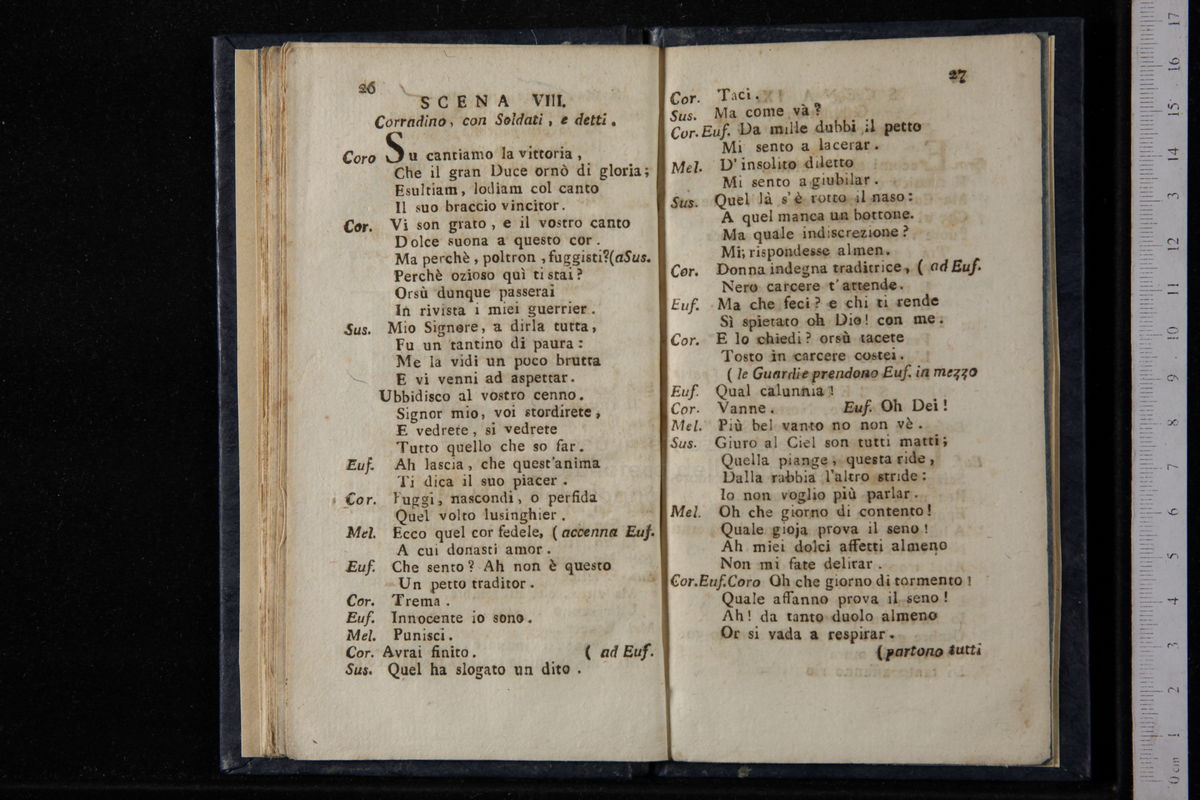 26
SCENA VIII.
Corradino, con Soldati, e detti.
Coro Su cantiamo la vittoria,
Che il gran Duce ornò di gloria;
Esultiam, lodiam col canto
Il suo braccio vincitor.
Cor. Vi son grato, e il vostro canto
Dolce suona a questo cor.
Ma perchè, poltron, fuggisti?(a Sus.
Perchè ozioso quì ti stai?
Orsù dunque passerai
In rivista i miei guerrier.
Sus. Mio Signore, a dirla tutta,
Fu un tantino di paura:
Me la vidi un poco brutta
E vi venni ad aspettar.
Ubbidisco al vostro cenno.
Signor mio, voi stordirete,
E vedrete, si vedrete
Tutto quello che so far.
Euf. Ah lascia, che quest'anima
Ti dica il suo piacer.
Cor. Fuggi, nascondi, o perfida
Quel volto lusinghier.
Mel. Ecco quel cor fedele, (accenna Euf.
A cui donasti amor.
Euf. Che sento? Ah non è questo
Un petto traditor.
Cor. Trema.
Euf. Innocente io sono.
Mel. Punisci.
Cor. Avrai finito. ( ad Euf.
Sus. Quel ha slogato un dito.
27
Cor. Taci.
Sus. Ma come và?
Cor. Euf. Da mille dubbi il petto
Mi sento a lacerar.
Mel. D'insolito diletto
Mi sento a giubilar.
Sus. Quel là s'è rotto il naso:
A quel manca un bottone.
Ma quale indiscrezione?
Mi; rispondesse almen.
Cor. Donna indegna traditrice, ( ad Euf.
Nero carcere t'attende.
Euf. Ma che feci? e chi ti rende
Sì spietato oh Dio! con me.
Cor. E lo chiedi? orsù tacete
Tosto in carcere costei.
( le Guardie prendono Euf. in mezzo
Euf. Qual calunnia!
Cor. Vanne. Euf. Oh Dei!
Mel. Più bel vanto no non vè.
Sus. Giuro al Ciel son tutti matti;
Quella piange, questa ride,
Dalla rabbia l'altro stride:
Io non voglio più parlar.
Mel. Oh che giorno di contento!
Quale gioja prova il seno!
Ah miei dolci affetti almeno
Non mi fate delirar.
Cor. Euf. Coro Oh che giorno di tormento!
Quale affanno prova il seno!
Ah! da tanto duolo almeno
Or si vada a respirar.
(partono tutti
0 cm 1 2 3 4 5 6 7 8 9 10 11 12 13 14 15 16 17